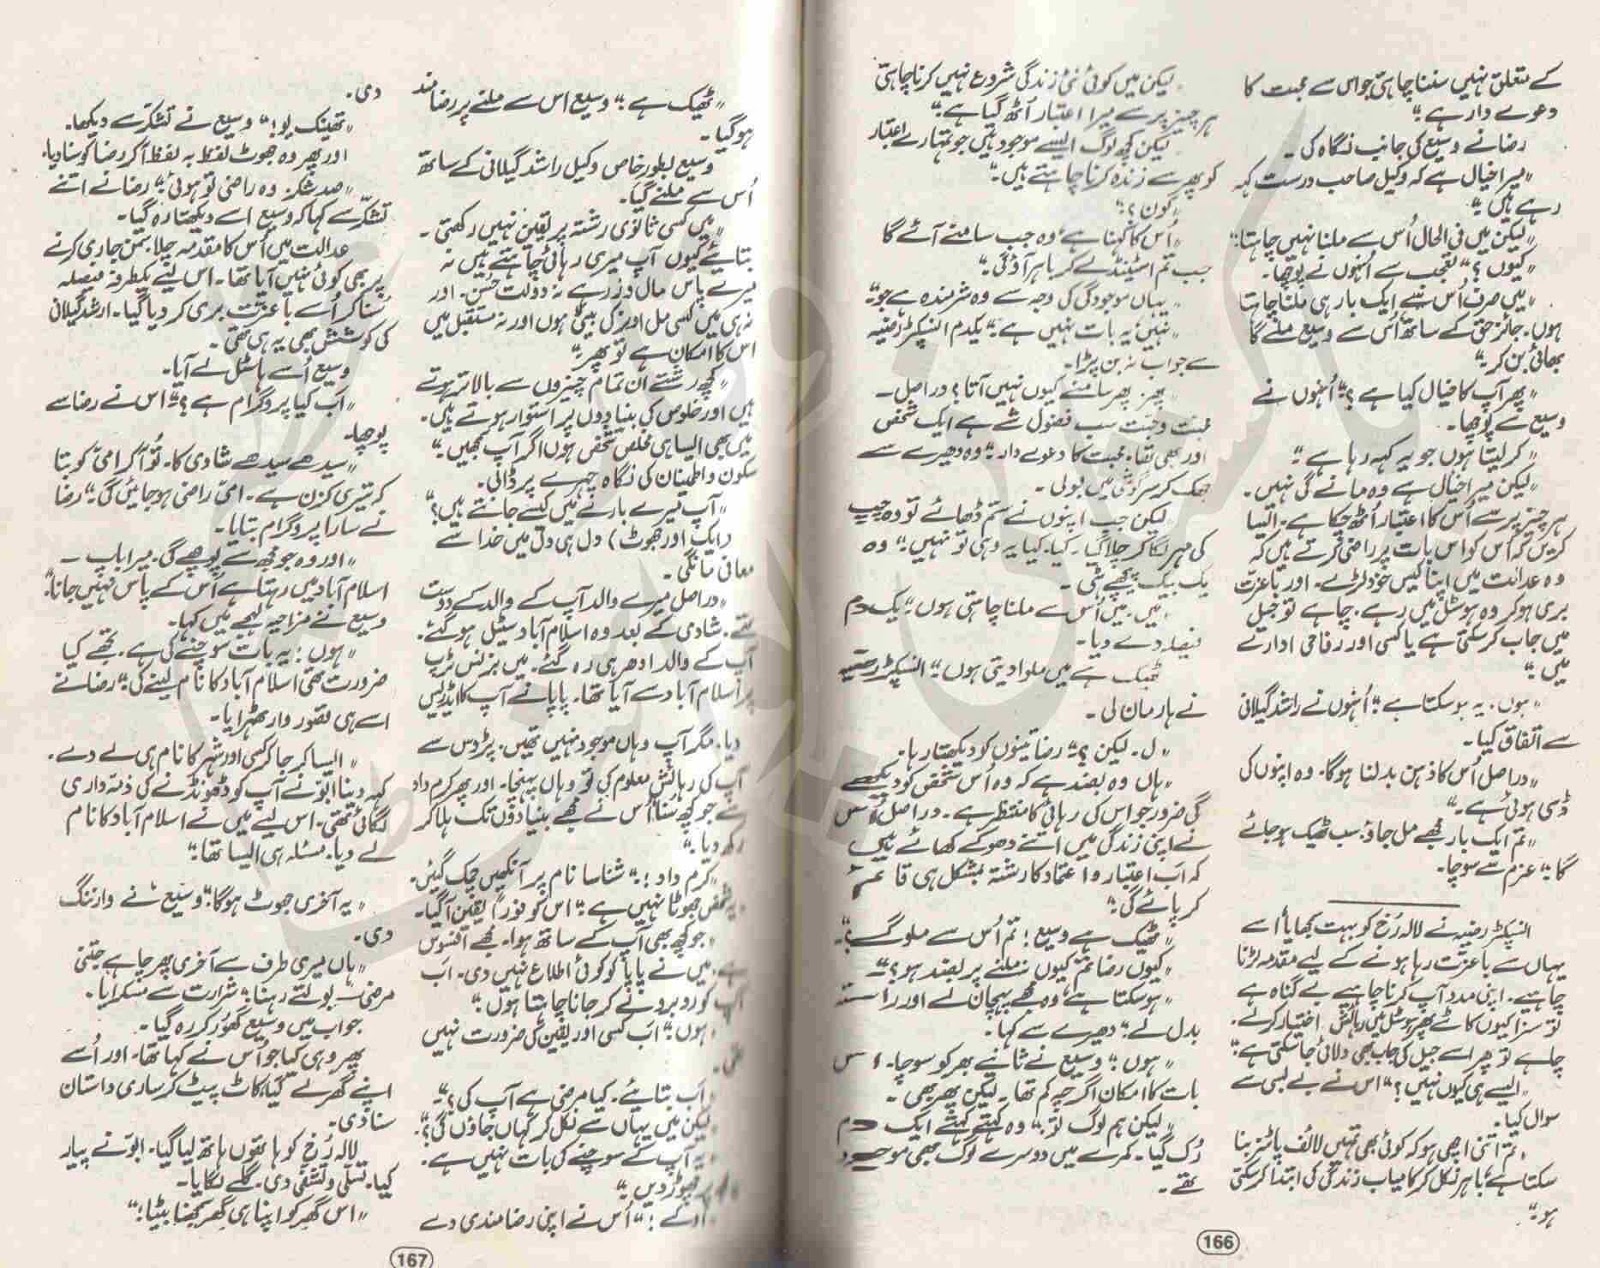 کے متعلق نہیں سننا چاہتی جو اس سے محبت کا
دعوے دار ہے"
رضا نے وسیع کی جانب نگاہ کی۔
"میرا خیال ہے کہ وکیل صاحب درست کہہ
رہے ہیں"
"لیکن میں فی الحال اُس سے ملنا نہیں چاہتا"
"کیوں؟" تعجب سے اُنہوں نے پوچھا۔
"میں صرف اُس سے ایک بار ہی ملنا چاہتا
ہوں۔ جائز حق کے ساتھ اُس سے وسیع ملنے گا
بھائی بن کر"
"پھر آپ کا خیال کیا ہے؟" اُنہوں نے
وسیع سے پوچھا۔
"کر لیتا ہوں جو یہ کہہ رہا ہے"
"لیکن میرا خیال ہے وہ مانے گی نہیں۔
ہر چیز پر سے اُس کا اعتبار اُٹھ چکا ہے۔ ایسا
کریں کہ اُس کو اس بات پر راضی کرتے ہیں کہ
وہ عدالت میں اپنا کیس خود لڑے۔ اور باعزت
بری ہو کر وہ ہوسٹل میں رہے۔ چاہے تو جیل
میں جاب کر سکتی ہے یا کسی اور رفاہی ادارے
میں"
"ہوں۔ یہ ہو سکتا ہے" اُنہوں نے راشد گیلانی
سے اتفاق کیا۔
"دراصل اُس کا ذہن بدلنا ہوگا۔ وہ اپنوں کی
ڈسی ہوئی ہے۔"
"تم ایک بار مجھے مل جاؤ۔ سب ٹھیک ہو جائے
گا" عزم سے سوچا۔
انسپکٹر رضیہ نے لالہ رُخ کو بہت سمجھایا اُسے
یہاں سے باعزت رہا ہونے کے لیے مقدمہ لڑنا
چاہیے۔ اپنی مدد آپ کرنا چاہیے بے گناہ ہے
تو سزا کیوں کاٹے پھر ہوسٹل میں رہائش اختیار کرلے۔
چاہے تو پھر اسے جیل کی جاب بھی دلائی جا سکتی ہے"
"ایسے ہی کیوں نہیں؟" اس نے بے بسی سے
سوال کیا۔
"تم اتنی اچھی ہو کہ کوئی بھی تمہیں لائف پارٹنر بنا
سکتا ہے باہر نکل کر کامیاب زندگی کی ابتدا کر سکتی
ہو"
"لیکن میں کوئی نئی زندگی شروع نہیں کرنا چاہتی
ہر چیز پر سے میرا اعتبار اُٹھ گیا ہے"
"لیکن کچھ لوگ ایسے موجود ہیں جو تمہارے اعتبار
کو پھر سے زندہ کرنا چاہتے ہیں"
"کون؟"
"اُس کا کہنا ہے وہ جب سامنے آئے گا
جب تم اسٹینڈ لے کر باہر آؤ گی"
"یہاں موجودگی کی وجہ سے وہ شرمندہ ہے جو"
"نہیں یہ بات نہیں ہے" یکدم انسپکٹر رضیہ
سے جواب نہ بن پڑا۔
"پھر سامنے کیوں نہیں آتا؟ دراصل۔
محبت وجبت سب فضول شے ہے ایک شخص
اور بھی تھا۔ محبت کا دعوے دار" وہ دھیرے سے
جھک کر سرگوشی میں بولی۔
"لیکن جب اپنوں نے ستم ڈھائے تو وہ چپ
کی مہر لگا کر چلا گیا۔ کیا۔ کیا یہ وہی تو نہیں" وہ
یک بیک پیچھے ہٹی۔
"میں۔ میں اُس سے ملنا چاہتی ہوں" یک دم
فیصلہ دے دیا۔
"ٹھیک ہے میں ملوا دیتی ہوں" انسپکٹر رضیہ
نے ہار مان لی۔
"ل۔ لیکن؟" رضا تینوں کو دیکھتا رہا۔
"ہاں وہ بضد ہے کہ وہ اُس شخص کو دیکھے
گی ضرور جو اس کی رہائی کا منتظر ہے۔ دراصل اُس
نے اپنی زندگی میں اتنے دھوکے کھائے ہیں
کہ اب اعتبار و اعتماد کا رشتہ بشکل ہی قائم
کر پائے گی"
"ٹھیک ہے وسیع! تم اُس سے ملو گے"۔
"کیوں رضا تم کیوں نہ ملنے پر بضد ہو؟"
"ہو سکتا ہے وہ مجھے پہچان لے اور راستہ
بدل لے" دھیرے سے کہا۔
"ہوں" وسیع نے ثانیے بھر کو سوچا۔ اس
بات کا امکان اگرچہ کم تھا۔ لیکن پھر بھی۔
"لیکن ہم لوگ تو" وہ کہتے کہتے ایک دم
رُک گیا۔ کمرے میں دوسرے لوگ بھی موجود
تھے۔
166
"ٹھیک ہے" وسیع اس سے ملنے پر رضا مند
ہوگیا۔
وسیع بطور خاص وکیل راشد گیلانی کے ساتھ
اُس سے ملنے گیا۔
"میں کسی ثانوی رشتہ پر یقین نہیں رکھتی۔
بتائیے کیوں آپ میری رہائی چاہتے ہیں نہ
میرے پاس مال و زر ہے نہ دولتِ حُسن۔ اور
نہ ہی میں کسی مل اونر کی بیٹی ہوں اور نہ مستقبل میں
اس کا امکان ہے تو پھر"
"کچھ رشتے ان تمام چیزوں سے بالاتر ہوتے
ہیں اور خلوص کی بنیادوں پر استوار ہوتے ہیں۔
میں بھی ایسا ہی مخلص شخص ہوں اگر آپ سمجھیں"
سکون و اطمینان کی نگاہ چہرے پر ڈالی۔
"آپ میرے بارے میں کیسے جانتے ہیں؟"
(ایک اور جھوٹ) دل ہی دل میں خدا سے
معافی مانگی۔
"دراصل میرے والد آپ کے والد کے دوست
تھے۔ شادی کے بعد وہ اسلام آباد سیٹل ہو گئے۔
آپ کے والد ادھر ہی رہ گئے۔ میں بزنس ٹرپ
پر اسلام آباد سے آیا تھا۔ پاپا نے آپ کا ایڈریس
دیا۔ مگر آپ وہاں موجود نہیں تھیں۔ پڑوس سے
آپ کی رہائش معلوم کی تو وہاں پہنچا۔ اور پھر کرم داد
سے جو کچھ سنا اُس نے مجھے بنیادوں تک ہلا کر
رکھ دیا۔"
"کرم داد!" شناسا نام پر آنکھیں چمک گئیں۔
"یہ شخص جھوٹا نہیں ہے" اُس کو فوراً یقین آ گیا۔
"جو کچھ بھی آپ کے ساتھ ہوا۔ مجھے افسوس
ہے۔ میں نے پاپا کو کوئی اطلاع نہیں دی۔ اب
آپ کو رو برو نے کر جانا چاہتا ہوں"
"ہوں" اب کسی اور یقین کی ضرورت نہیں
تھی۔
"اب بتائیے۔ کیا مرضی ہے آپ کی؟"
"لیکن میں یہاں سے نکل کر کہاں جاؤں گی؟"
"یہ آپ کے سوچنے کی بات نہیں ہے۔
پر چھوڑ دیں"
"اوکے!" اُس نے اپنی رضا مندی دے
دی۔
"تھینک یو!" وسیع نے تشکر سے دیکھا۔
اور پھر وہ جھوٹ لفظ بہ لفظ آ کر رضا کو سنا دیا۔
"صد شکر۔ وہ راضی تو ہوئی" رضا نے اتنے
تشکر سے کہا کہ وسیع اسے دیکھتا رہ گیا۔
عدالت میں اُس کا مقدمہ چلا۔ سمن جاری کرنے
پر بھی کوئی نہیں آیا تھا۔ اس لیے یکطرفہ فیصلہ
سنا کر اُسے باعزت بری کر دیا گیا۔ ارشد گیلانی
کی کوشش بھی یہ ہی تھی۔
وسیع اسے ہاسٹل لے آیا۔
"اب کیا پروگرام ہے؟" اس نے رضا سے
پوچھا۔
"سیدھے سیدھے شادی کا۔ تُو اگر امی کو بتا
کہ تیری کزن ہے۔ امی راضی ہو جائیں گی" رضا
نے سارا پروگرام بتایا۔
"اور وہ جو مجھ سے پوچھے گی۔ میرا باپ۔
اسلام آباد میں رہتا ہے اُس کے پاس نہیں جانا"
وسیع نے مزاحیہ لہجے میں کہا۔
"ہوں! یہ بات سوچنے کی ہے۔ تجھے کیا
ضرورت تھی اسلام آباد کا نام لینے کی" رضا نے
اسے ہی قصور وار ٹھہرایا۔
"ایسا کر جا کر کسی اور شہر کا نام ہی لے دے۔
کہہ دینا ابو نے آپ کو ڈھونڈنے کی ذمہ داری
لگائی تھی۔ اس لیے میں نے اسلام آباد کا نام
لے دیا۔ مسئلہ ہی ایسا تھا"
"یہ آخری جھوٹ ہوگا" وسیع نے وارننگ
دی۔
"ہاں میری طرف سے آخری پھر چاہے جتنی
مرضی۔ بولتے رہنا" شرارت سے مسکرایا۔
جواب میں وسیع گھور کر رہ گیا۔
پھر وہی کیا جو اُس نے کہا تھا۔ اور اُسے
اپنے گھر لے گیا۔ کاٹ پیٹ کر ساری داستان
سنا دی۔
لالہ رُخ کو ہاتھوں ہاتھ لیا گیا۔ ابو نے پیار
کیا۔ تسلی و تشفی دی۔ گلے لگایا۔
"اس گھر کو اپنا ہی گھر سمجھنا بیٹا!"
167